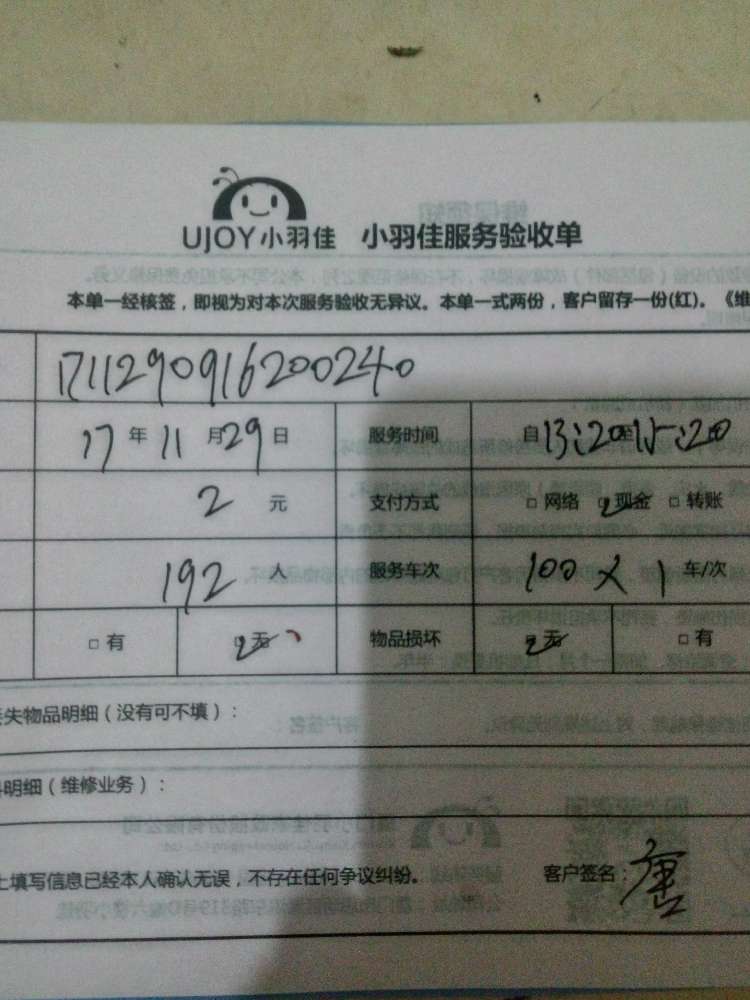 UJOY小羽佳 小羽佳服务验收单
本单一经核签，即视为对本次服务验收无异议。本单一式两份，客户留存一份(红)。《维
1711290916200240
17年11月29日 服务时间 自13:20至15:20
2 元 支付方式 □ 网络 □ 现金 □ 转账
192 人 服务车次 100 × 1 车/次
□ 有 □ 无 物品损坏 □ 无 □ 有
失物品明细（没有可不填）：
明细（维修业务）：
上填写信息已经本人确认无误，不存在任何争议纠纷。 客户签名：唐